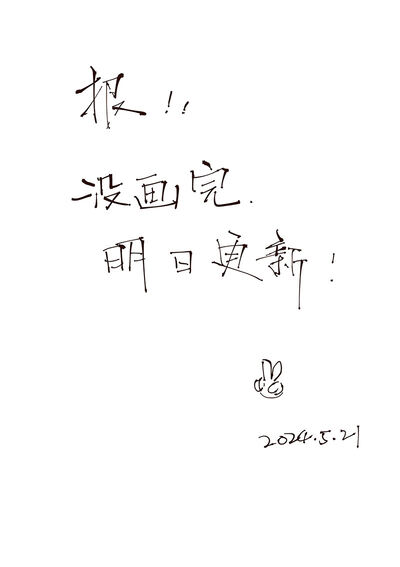 报!!
没画完.
明日更新!
2024.5.21